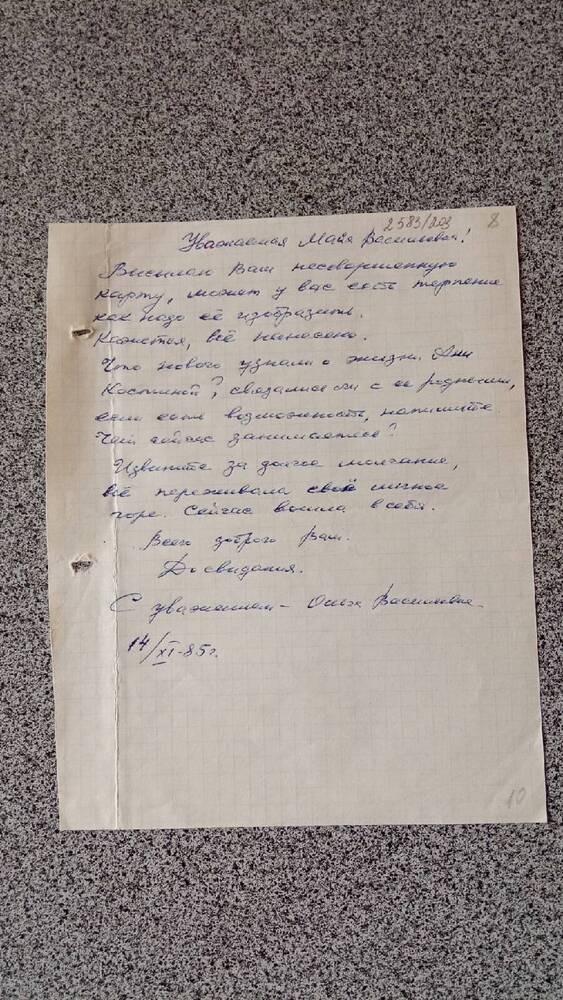 2583/203
8
Уважаемая Майя Васильевна!
Высылаю Вам несовершенную
карту, может у вас есть терпение
как надо её изобразить.
Кажется, всё нанесено.
Что нового узнали о жизни Ани
Костиной?, связались ли с ее родными,
если есть возможность, напишите.
Чем сейчас занимаетесь?
Извините за долгое молчание,
всё переживала своё личное
горе. Сейчас вошла в себя.
Всего доброго Вам.
До свидания.
С уважением – Ольга Васильевна.
14/XI-85 г.
10